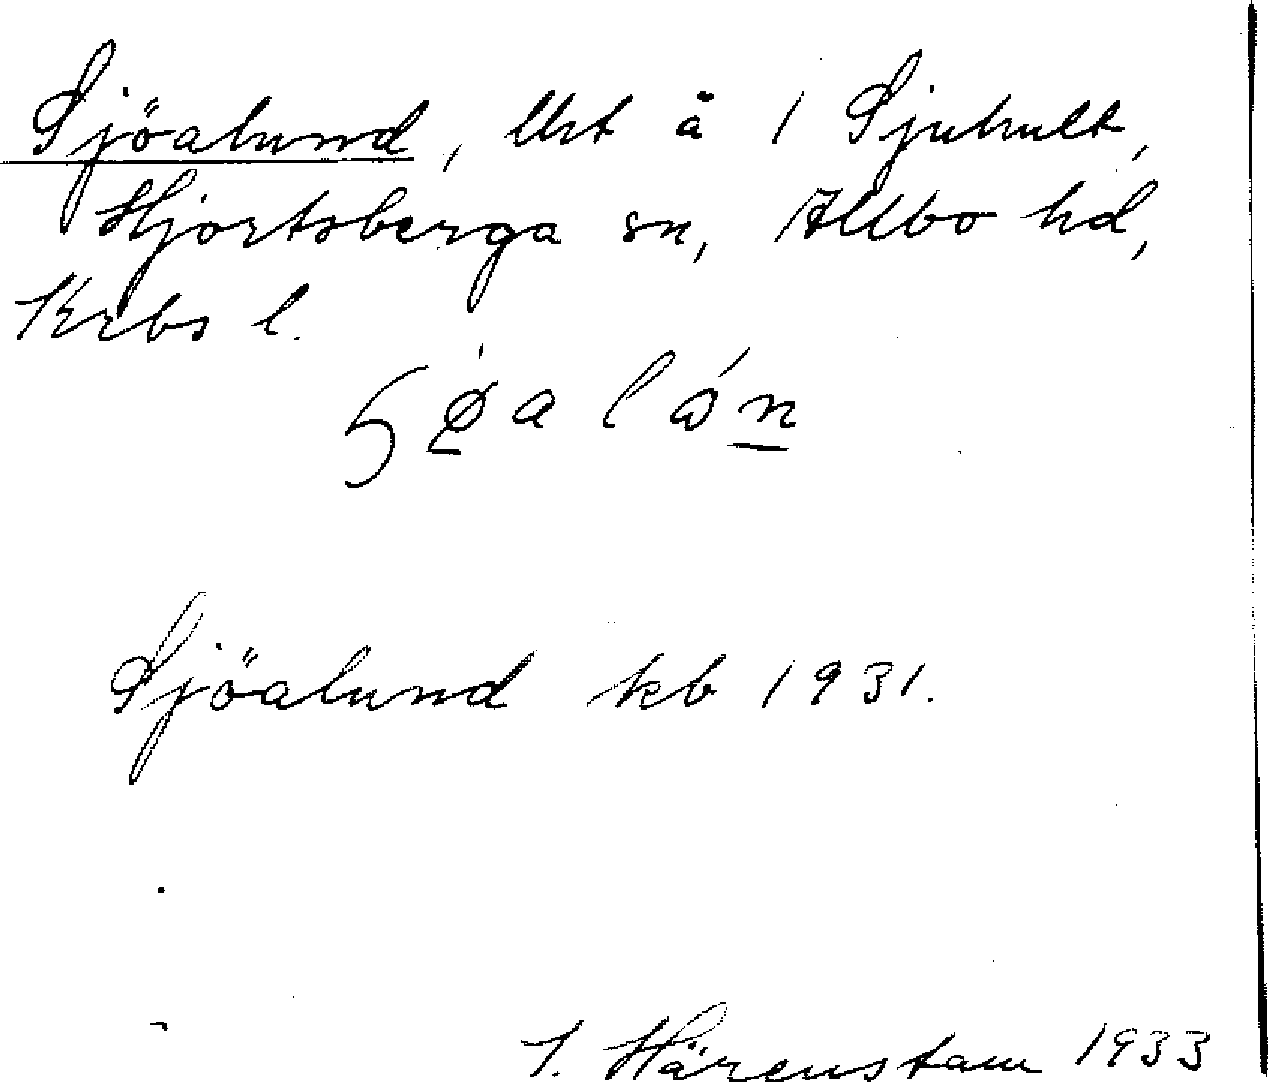 Sjöalund, lht å 1 Sjuhult,
Hjortsberga sn, Allbo hd,
Krbs l.
Sjöalund kb 1931.
J. Härenstam 1933